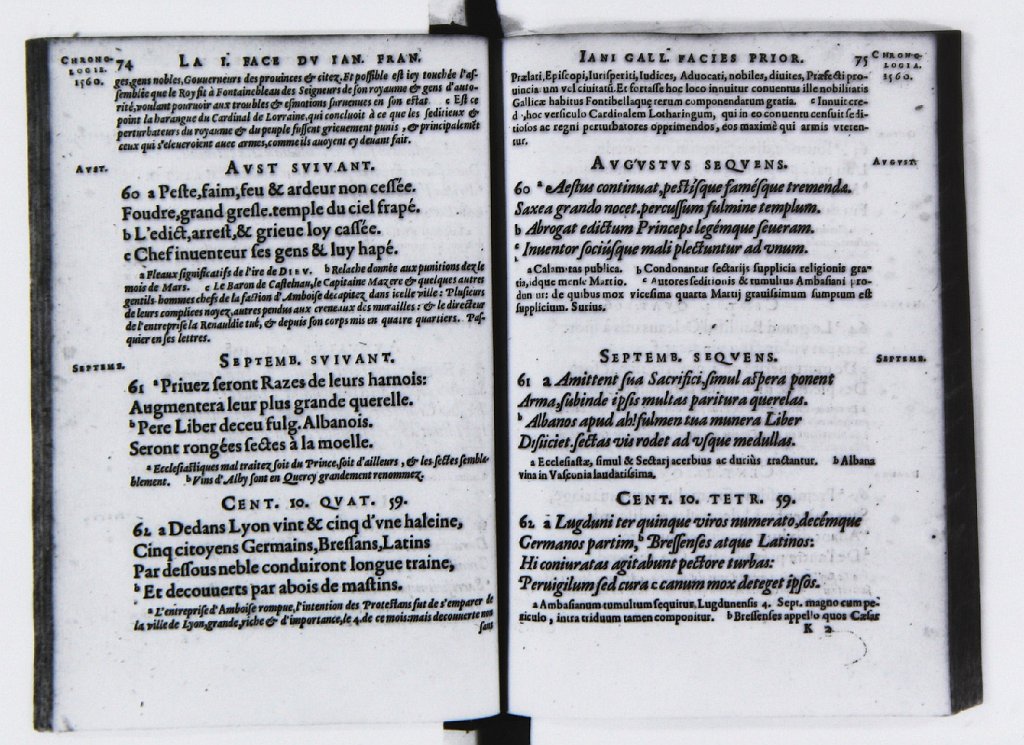 CHRONO-
LOGIE.
1560.
74 LA I. FACE DV IAN. FRAN.
ges, gens nobles, Gouuerneurs des prouinces & citez. Et possible est icy touchée l'as-
semblée que le Roy fit à Fontainebleau des Seigneurs de son royaume & gens d'auto-
rité, voulant pouruoir aux troubles & esmotions suruenues en son estat. c Est ce
point la harangue du Cardinal de Lorraine, qui concluoit à ce que les seditieux &
perturbateurs du royaume & du peuple fussent grieuement punis, & principalemēt
ceux qui s'esleueroient auec armes, comme ils auoyent ey deuant fair.
AVST.
AVST SVIVANT.
60 a Peste, faim, feu & ardeur non cessée.
Foudre, grand gresle. temple du ciel frapé.
b L'edict, arrest, & grieue loy cassée.
c Chef inuenteur ses gens & luy hapé.
a Fleaux significatifs de l'ire de DIEV. b Relache donnée aux punitions dez le
mois de Mars. c Le Baron de Castelnau, le Capitaine Mazere & quelques autres
gentils-hommes chefs de la faction d'Amboise decapitez dans icelle ville: Plusieurs
de leurs complices noyez, autres pendus aux creneaux des murailles: & le directeur
de l'entreprise la Renauldie tué, & depuis son corps mis en quatre quartiers. Pas-
quier en ses lettres.
SEPTEMB.
SEPTEMB. SVIVANT.
61 a Priuez seront Razes de leurs harnois:
Augmentera leur plus grande querelle.
b Pere Liber deceu fulg. Albanois.
Seront rongées sectes à la moelle.
a Ecclesiastiques mal traitez soit du Prince, soit d'ailleurs, & les sectes semble-
blement. b Vins d'Alby sont en Quercy grandement renommez.
CENT. 10. QVAT. 59.
62 a Dedans Lyon vint & cinq d'vne haleine,
Cinq citoyens Germains, Bressans, Latins
Par dessous neble conduiront longue traine,
b Et decouuerts par abois de mastins.
a L'entreprise d'Amboise rompue, l'intention des Protestans fut de s'emparer de
la ville de Lyon, grande, riche & d'importance, le 4. de ce mois: mais decouuerte non
sans
IANI GALL. FACIES PRIOR. 75
CHRONO-
LOGIA.
1560.
Prælati, Episcopi, Iurisperiti, Iudices, Advocati, nobiles, diuites, Præfecti pro-
uinciarum vel ciuitatū. Et fortasse hoc loco innuitur conuentus ille nobilitatis
Gallicæ habitus Fontibellaquæ rerum componendarum gratia. c Innuit cre-
d , hoc versiculo Cardinalem Lotharingum, qui in eo conuentu censuit sedi-
tiosos ac regni perturbatores opprimendos, eos maximè qui armis vteren-
tur.
AVGVST.
AVGVSTVS SEQVENS.
60 a Aestus continuat, pestísque famésque tremenda.
Saxea grando nocet, percussum fulmine templum.
b Abrogat edictum Princeps legémque seueram.
c Inuentor sociúsque mali plectuntur ad vnum.
a Calamitas publica. b Condonantur sectarijs supplicia religionis gra-
tia, idque mense Martio. c Autores seditionis & tumultus Ambasiani pro-
dun ur: de quibus mox vicesima quarta Martij grauissimum sumptum est
supplicium. Surius.
SEPTEMB.
SEPTEMB. SEQVENS.
61 a Amittent sua Sacrifici, simul aspera ponent
Arma, subinde ipsis multas paritura querelas.
b Albanos apud ah! fulmen tua munera Liber
Disiiciet. sectas vis rodet ad vsque medullas.
a Ecclesiastæ, simul & Sectarj acerbius ac duriùs tractantur. b Albana
vina in Vasconia laudatissima.
CENT. 10. TETR. 59.
62 a Lugduni ter quinque viros numerato, decémque
Germanos partim, b Bressenses atque Latinos:
Hi coniuratas agitabunt pectore turbas:
Peruigilum sed cura c canum mox deteget ipsos.
a Ambasianum tumultum sequitur Lugdunensis 4. Sept. magno cum pe-
riculo, intra triduum tamen componitur. b Bressenses appello quos Cæsar
K 2